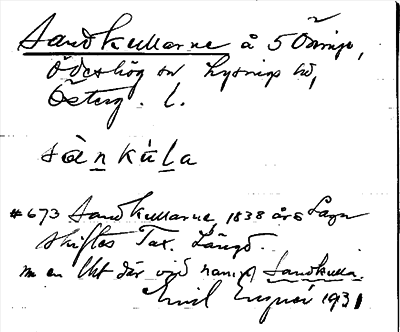 Sandkullarne å 5 Öninge,
Ödeshög sn Lysings hd,
Österg. l.
sànkúla
#673 Sandkullarne, 1838 års Laga
skiftes Tax. Längd.
m en lht där vid namn Sandkulla.
Emil 1931